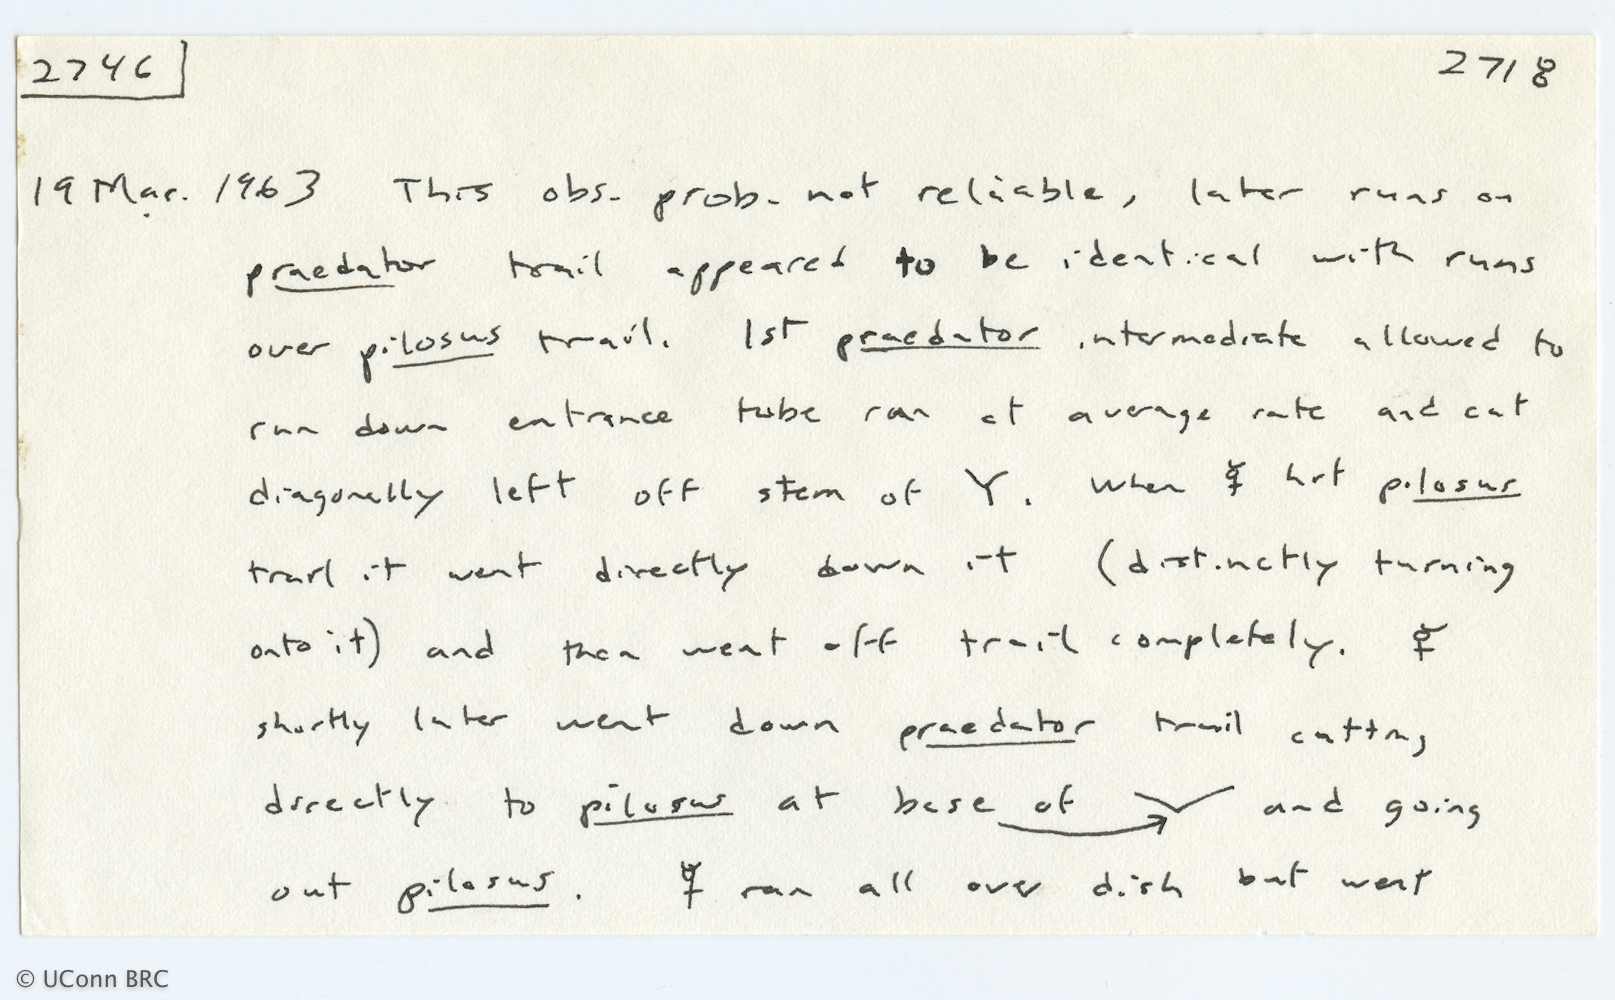 2746 2718
19 Mar. 1963 This obs. prob. not reliable, later runs on
praedator trail appeared to be identical with runs
over pilosus trail. 1st praedator intermediate allowed to
run down entrance tube ran at average rate and cut
diagonally left off stem of Y. When ☿ hit pilosus
trail it went directly down it (distinctly turning
onto it) and then went off trail completely. ☿
shortly later went down praedator trail cutting
directly to pilosus at base of and going
out pilosus. ☿ ran all over dish but went
© UConn BRC